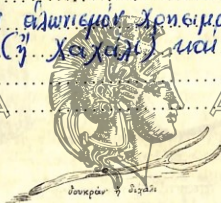 ἁλωνισμόν χρησιμο
(ἤ χαχάλι) καί
δουκράν ἤ διχάλι